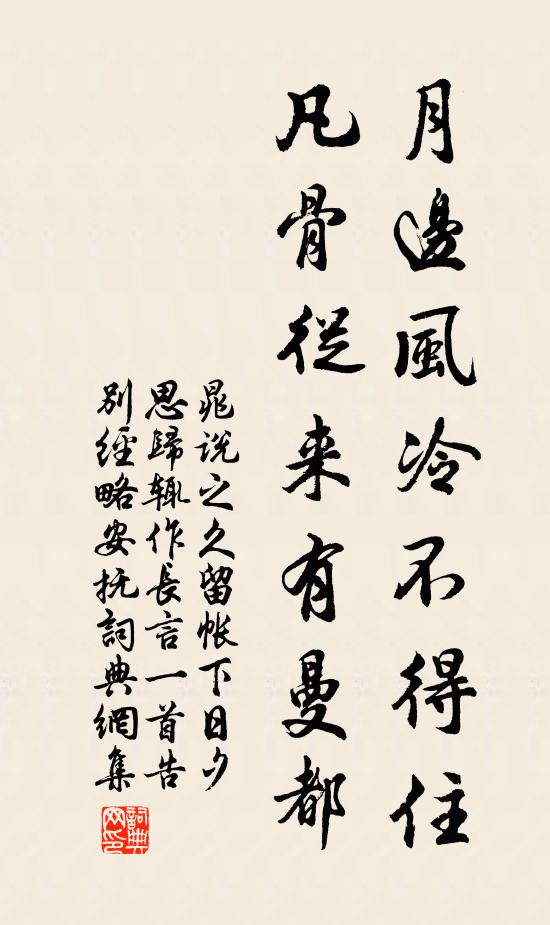 月邊風冷不得住
凡骨從来有曼都
晁说之久留帐下日夕
思歸輒作長言一首告
别經略安抚詞典網集
詞典網印